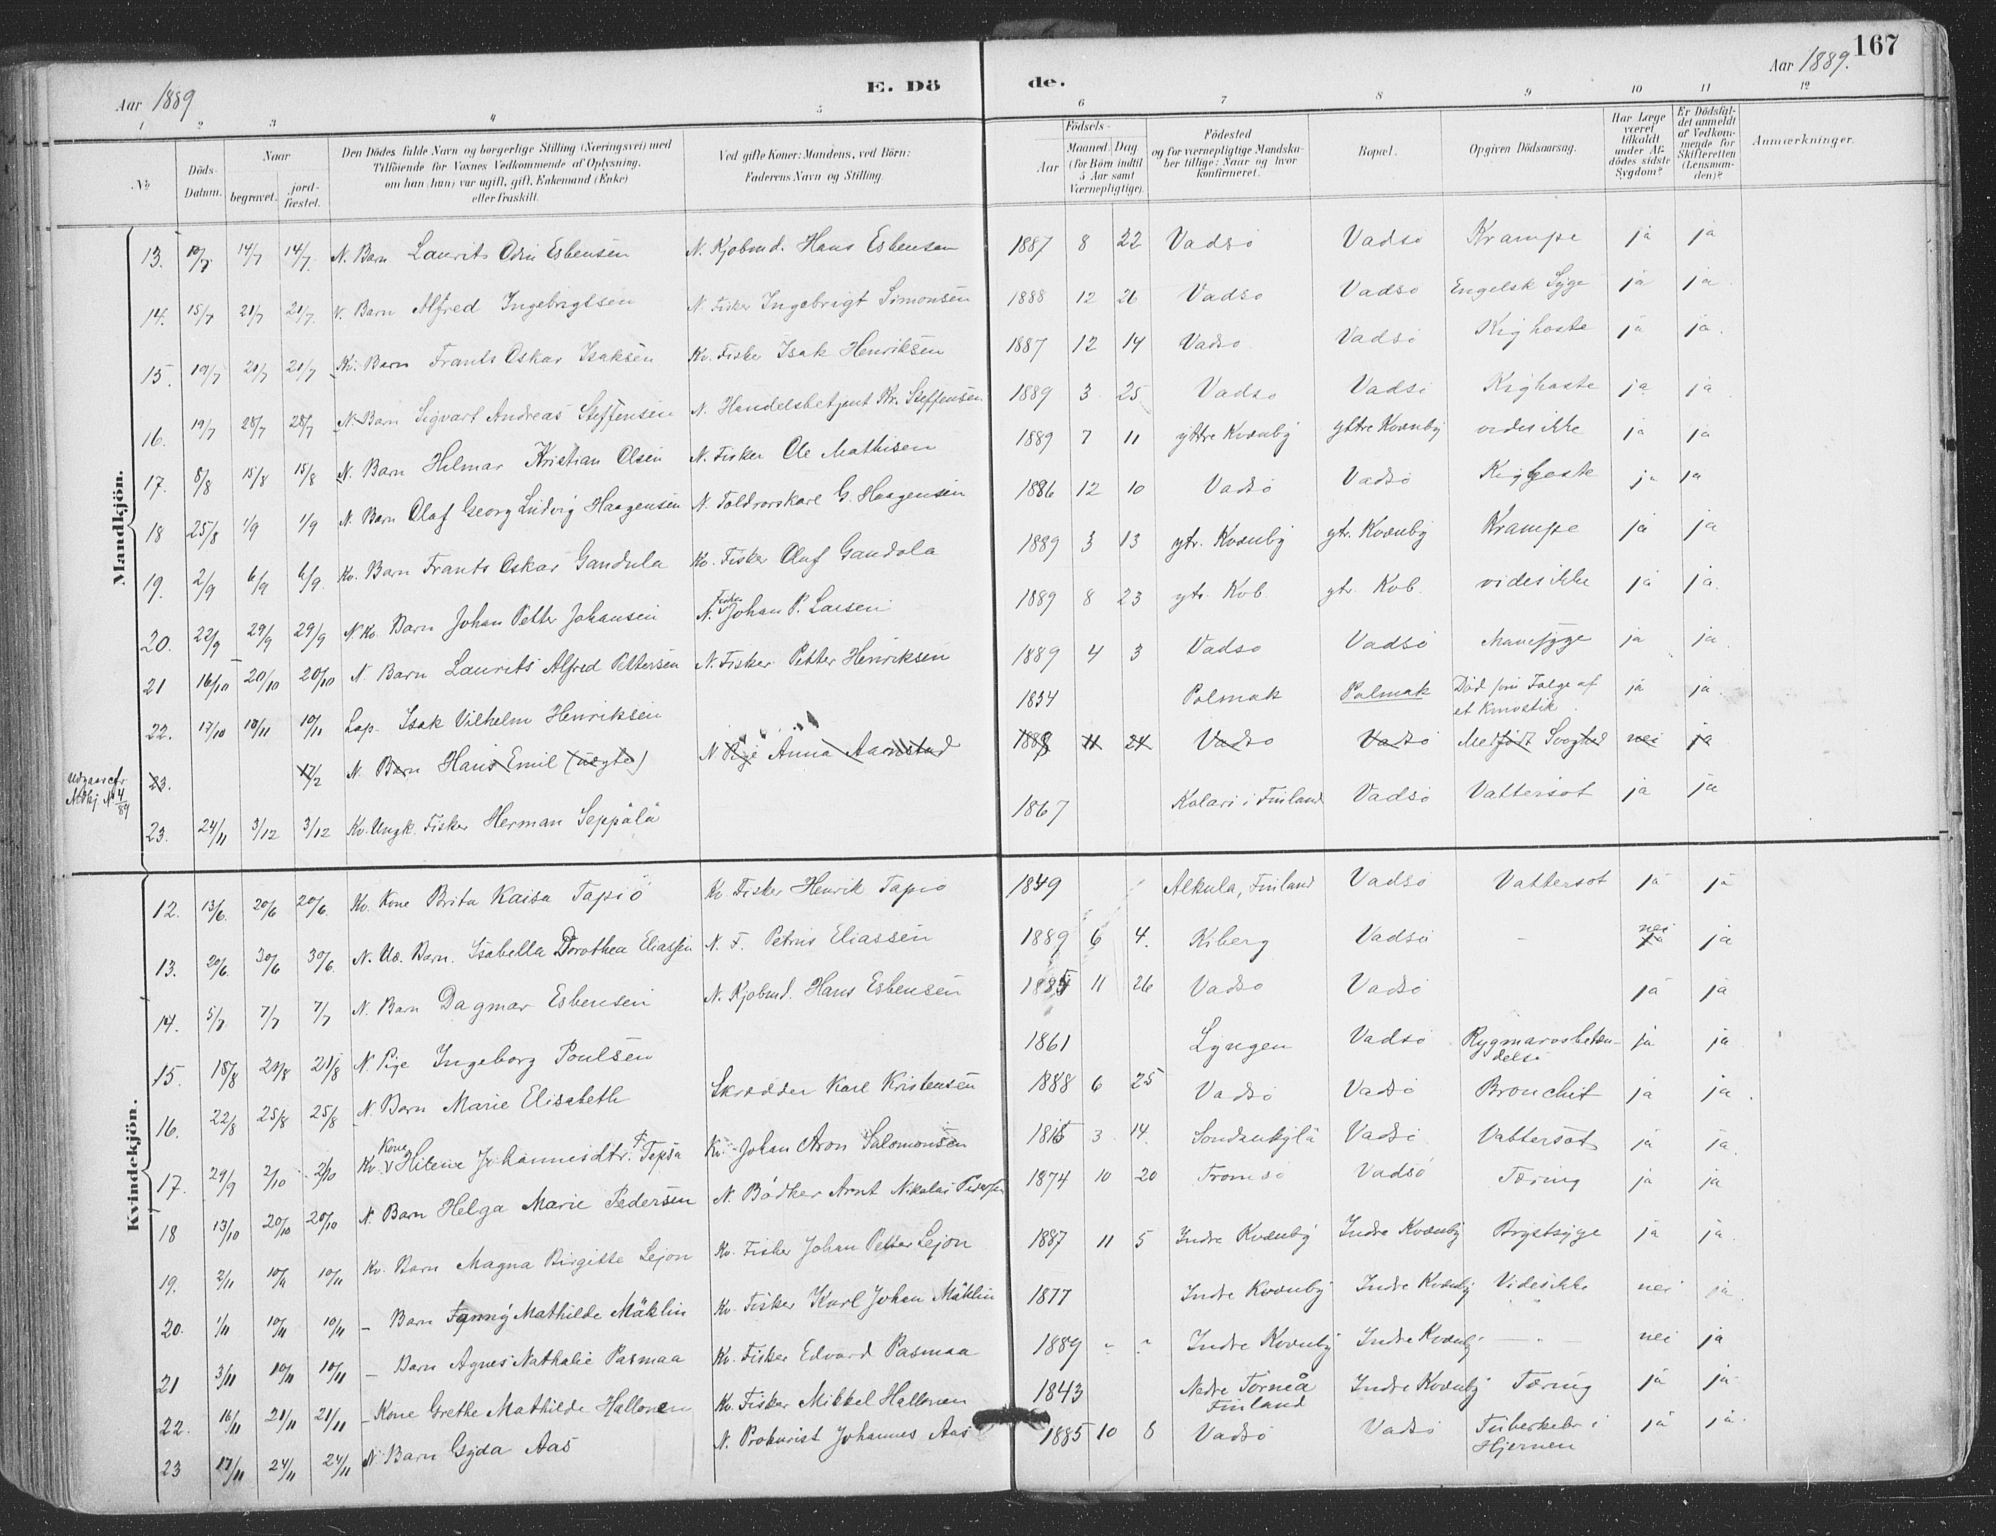 167
Aar 1889
E. Dö
de.
Aar 1889.
1 2 3 4 5 6 7 8 9 10 11 12
No
Döds-Datum.
Naar begravet. jord-fæstet.
Den Dödes fulde Navn og borgerlige Stilling (Næringsvei) med Tilföiende for Voxnes Vedkommende af Oplysning, om han (hun) var ugift, gift, Enkemand (Enke) eller fraskilt.
Ved gifte Koner: Mandens, ved Börn: Faderens Navn og Stilling.
Födsels-
Aar Maaned. Dag (for Börn indtil 5 Aar samt Værnepligtige).
Födested og for værnepligtige Mandskaber tillige: Naar og hvor konfirmeret.
Bopæl.
Opgiven Dödsaarsag.
Har Læge været tilkaldt under Afdödes sidste Sygdom?
Er Dödsfaldet anmeldt af Vedkommende for Skifteretten (Lensmanden)?
Anmærkninger.
Mandkjön.
13. 10/7 14/7 14/7. N. Barn Laurits Odin Esbensen N. Kjøbmd. Hans Esbensen 1887 8 22 Vadsö Vadsö Krampe ja ja
14. 15/7 21/7 21/7. N. Barn Alfred Ingebrigtsen N. Fisker Ingebrigt Simonsen 1888 12 26 Vadsö Vadsö Engelsk Syge ja ja.
15. 19/7 21/7 21/7 Kv. Barn Frants Oskar Isaksen Kv. Fisker Isak Henriksen 1887 12 14 Vadsö Vadsö Kighoste ja ja.
16. 19/7 28/7 28/7 N. Barn Sigvart Andreas Steffensen N. Handelsbetjent Steffensen 1889 3 25 Vadsö Vadsö Kighoste ja ja
17. 8/8 15/8 15/8 N. Barn Hilmar Kristian Olsen N. Fisker Ole Mathisen 1889 7 11 yttre Kvænby yttre Kvænby vides ikke ja ja
18 25/8 1/9 1/9 N. Barn Olaf Georg Ludvig Haagensen N. Toldrorskarl G. Haagensen 1886 12 10 Vadsö Vadsö Kighoste ja ja
19. 2/9 6/9 6/9. Kv. Barn Frants Oskar Gandula Kv. Fisker Olaf Gandola 1889 3 13 ytr. Kvænby ytr. Kvænby Krampe ja ja
20. 22/9 29/9 29/9 N. Kv. Barn Johan Petter Johansen N. Fisker Johan P. Larsen 1889 8 23 ytr. Kvb. ytr. Kvb. vides ikke ja ja.
21 16/10 20/10 20/10 N. Barn Laurits Alfred Pettersen N. Fisker Petter Henriksen 1889 4 3 Vadsö Vadsö Mavesyge ja ja
22. 17/10 10/11 10/11 Lap. Isak Vilhelm Henriksen 1834 Polmak Polmak Död som Følge af et Knivstik. ja ja.
Udgaar cfr Mdkj. No 4/89
23. 17/2 N. Barn Hans Emil (uægte) N. Pige Anna Aarnstad 1888 11 24 Vadsö Vadsö Medfødt Svaghed nei ja
23. 24/11 3/12 3/12 Kv. Ungk. Fisker Herman Seppälä 1867 Kolari i Finland Vadsö Vattersot ja ja
Kvindekjön.
12. 13/6. 20/6 20/6. Kv. Kone Brita Kaisa Tapiö Kv Fisker Henrik Tapio 1849 Alkula, Finland Vadsö Vattersot ja ja
13. 20/6. 30/6 30/6. N. Uæ. Barn. Isabella Dorothea Eliassen N. F. Petrus Eliassen 1889 6 4. Kiberg Vadsö - nei ja
14. 5/7 7/7 7/7 N. Barn Dagmar Esbensen N. Kjøbmd. Hans Esbensen 1885 11 26 Vadsö Vadsö ja ja
15. 18/8 21/8 21/8 N. Pige Ingeborg Poulsen 1861 Lyngen Vadsö Rygmarvsbetændelse ja ja
16. 22/8 25/8 25/8 N. Barn Marie Elisabeth Skrædder Karl Kristensen 1888 6 25 Vadsö Vadsö Bronchit ja ja.
17. 29/9 2/10 2/10 Kv. Kone Helene Johannesdtr. Tapsa Kv. Johan Aron Salomonsen 1815 3 14. Sondankylä Vadsö Vattersot ja ja.
18 13/10 20/10 20/10 N. Barn Helga Marie Pedersen N. Bødker Arnt Nikolai Pedersen 1874 10 20 Tromsö Vadsö Tæring ja ja
19. 2/11 10/11 10/11 Kv. Barn Magna Birgitte Lejon Kv. Fisker Johan Petter Lejon 1887 11 5 Indre Kvænby Indre Kvænby Brystsyge ja ja.
20. 1/11 10/11 10/11 - Barn Fanny Mathilde Mäklin Kv. Fisker Karl Johan Mäklin 1877 Indre Kvænby Indre Kvænby Vides ikke nei ja.
21 3/11 10/11 10/11 - Barn Agnes Nathalie Pasmaa Kv. Fisker Edvard Pasmaa 1889 " " Indre Kvænby Indre Kvænby — " — nei ja
22. 16/11 21/11 21/11 - Kone Grethe Mathilde Hallonen Kv. Fisker Mikkel Hallonen 1843 Nedre Torneå Finland Indre Kvænby Tæring ja ja.
23 17/11 24/11 24/11 N. Barn Gyda Aas N. Prokurist Johannes Aas 1885 10 8 Vadsö Vadsö Tuberkeler i Hjernen ja ja.